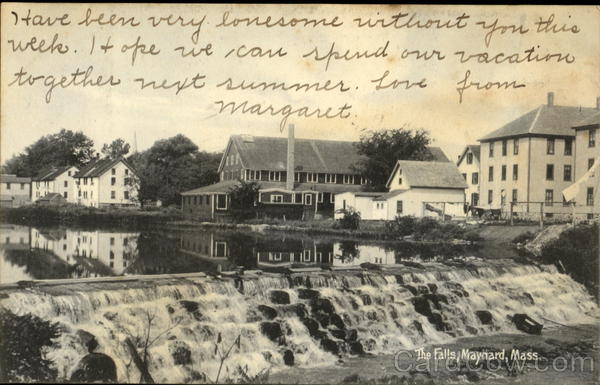 Have been very lonesome without you this
week. Hope we can spend our vacation
together next summer. Love from
Margaret.
The Falls, Maynard, Mass.
CardCow.com